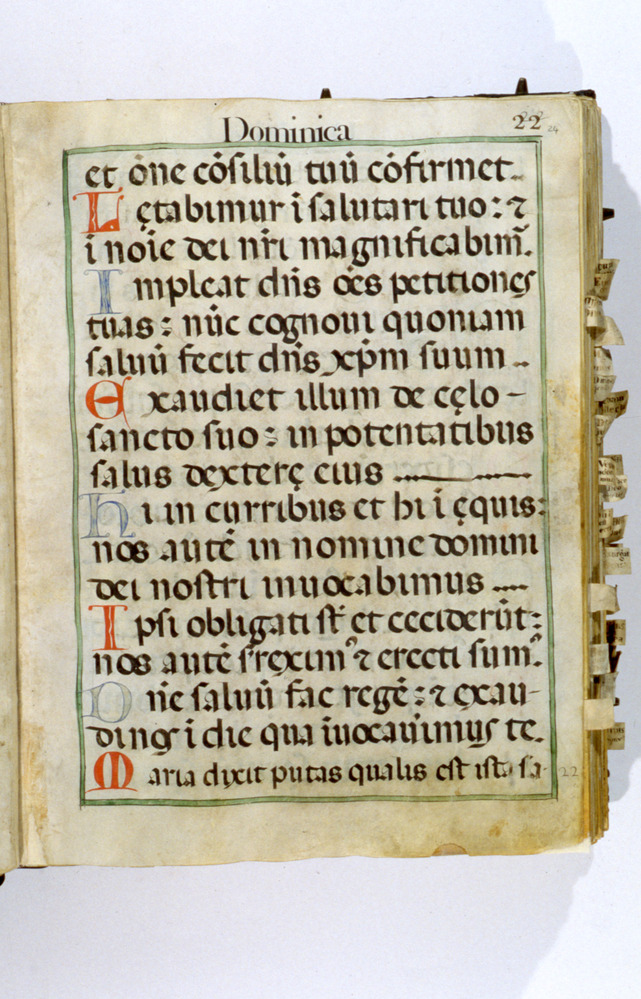 Dominica
22
24
et one cōsiliū tuū cōfirmet.
Lętabimur ī salutari tuo: ⁊
ī noīe dei nr̄i magnificabim̄.
Impleat dn̄s oēs petitionęs
tuas: nūc cognoui quoniam
saluū fecit dn̄s xp̄m suum
Exaudiet illum de cęlo
sancto suo: in potentatibus
salus dexterę eius
Hi in curribus et hi ī ęquis:
nos autē in nomine domini
dei nostri inuocabimus
Ipsi obligati st̄ et ceciderūt:
nos autē s'rexim᾽ ⁊ erecti sum᾽.
Dn̄e saluū fac regē: ⁊ exau-
di nos ī die qua īuocauimus te.
Maria dixit putas qualis est ista sa
22